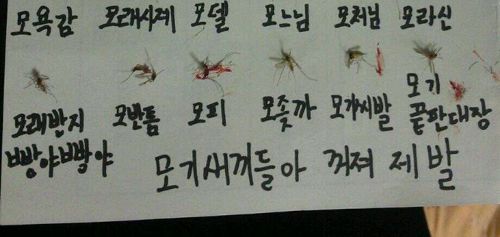 모욕감 모래시계 모델 모느님 모처님 모라신
모래반지 모반톱 모피 모좃까 모가씨발 모기
빵야빵야 끝판대장
모기새끼들아 꺼져 제발